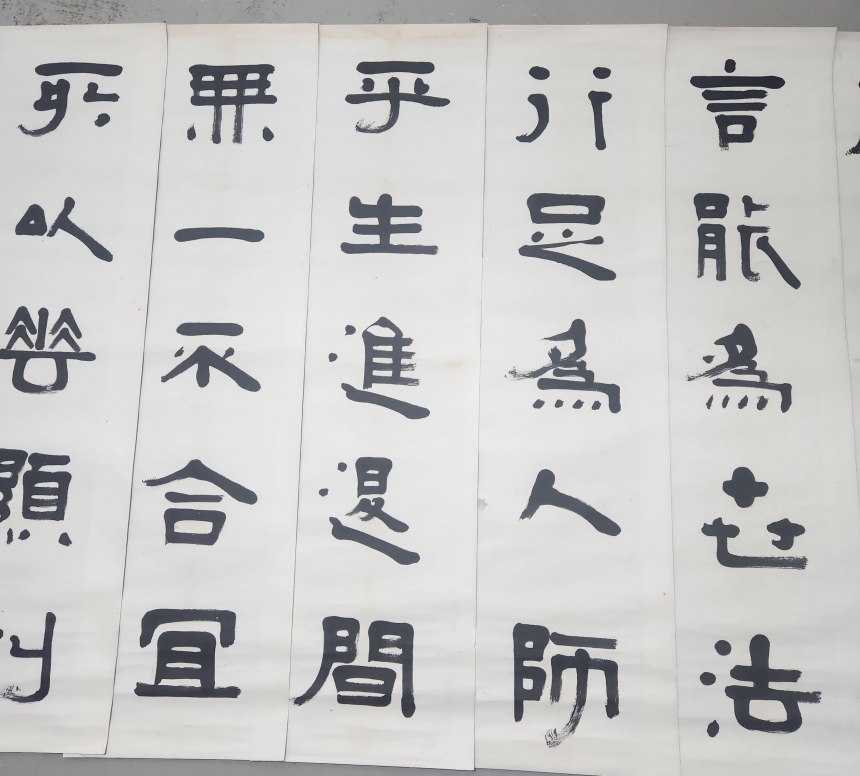 言能為世法
行足為人師
平生進退間
無一不合宜
所以顯